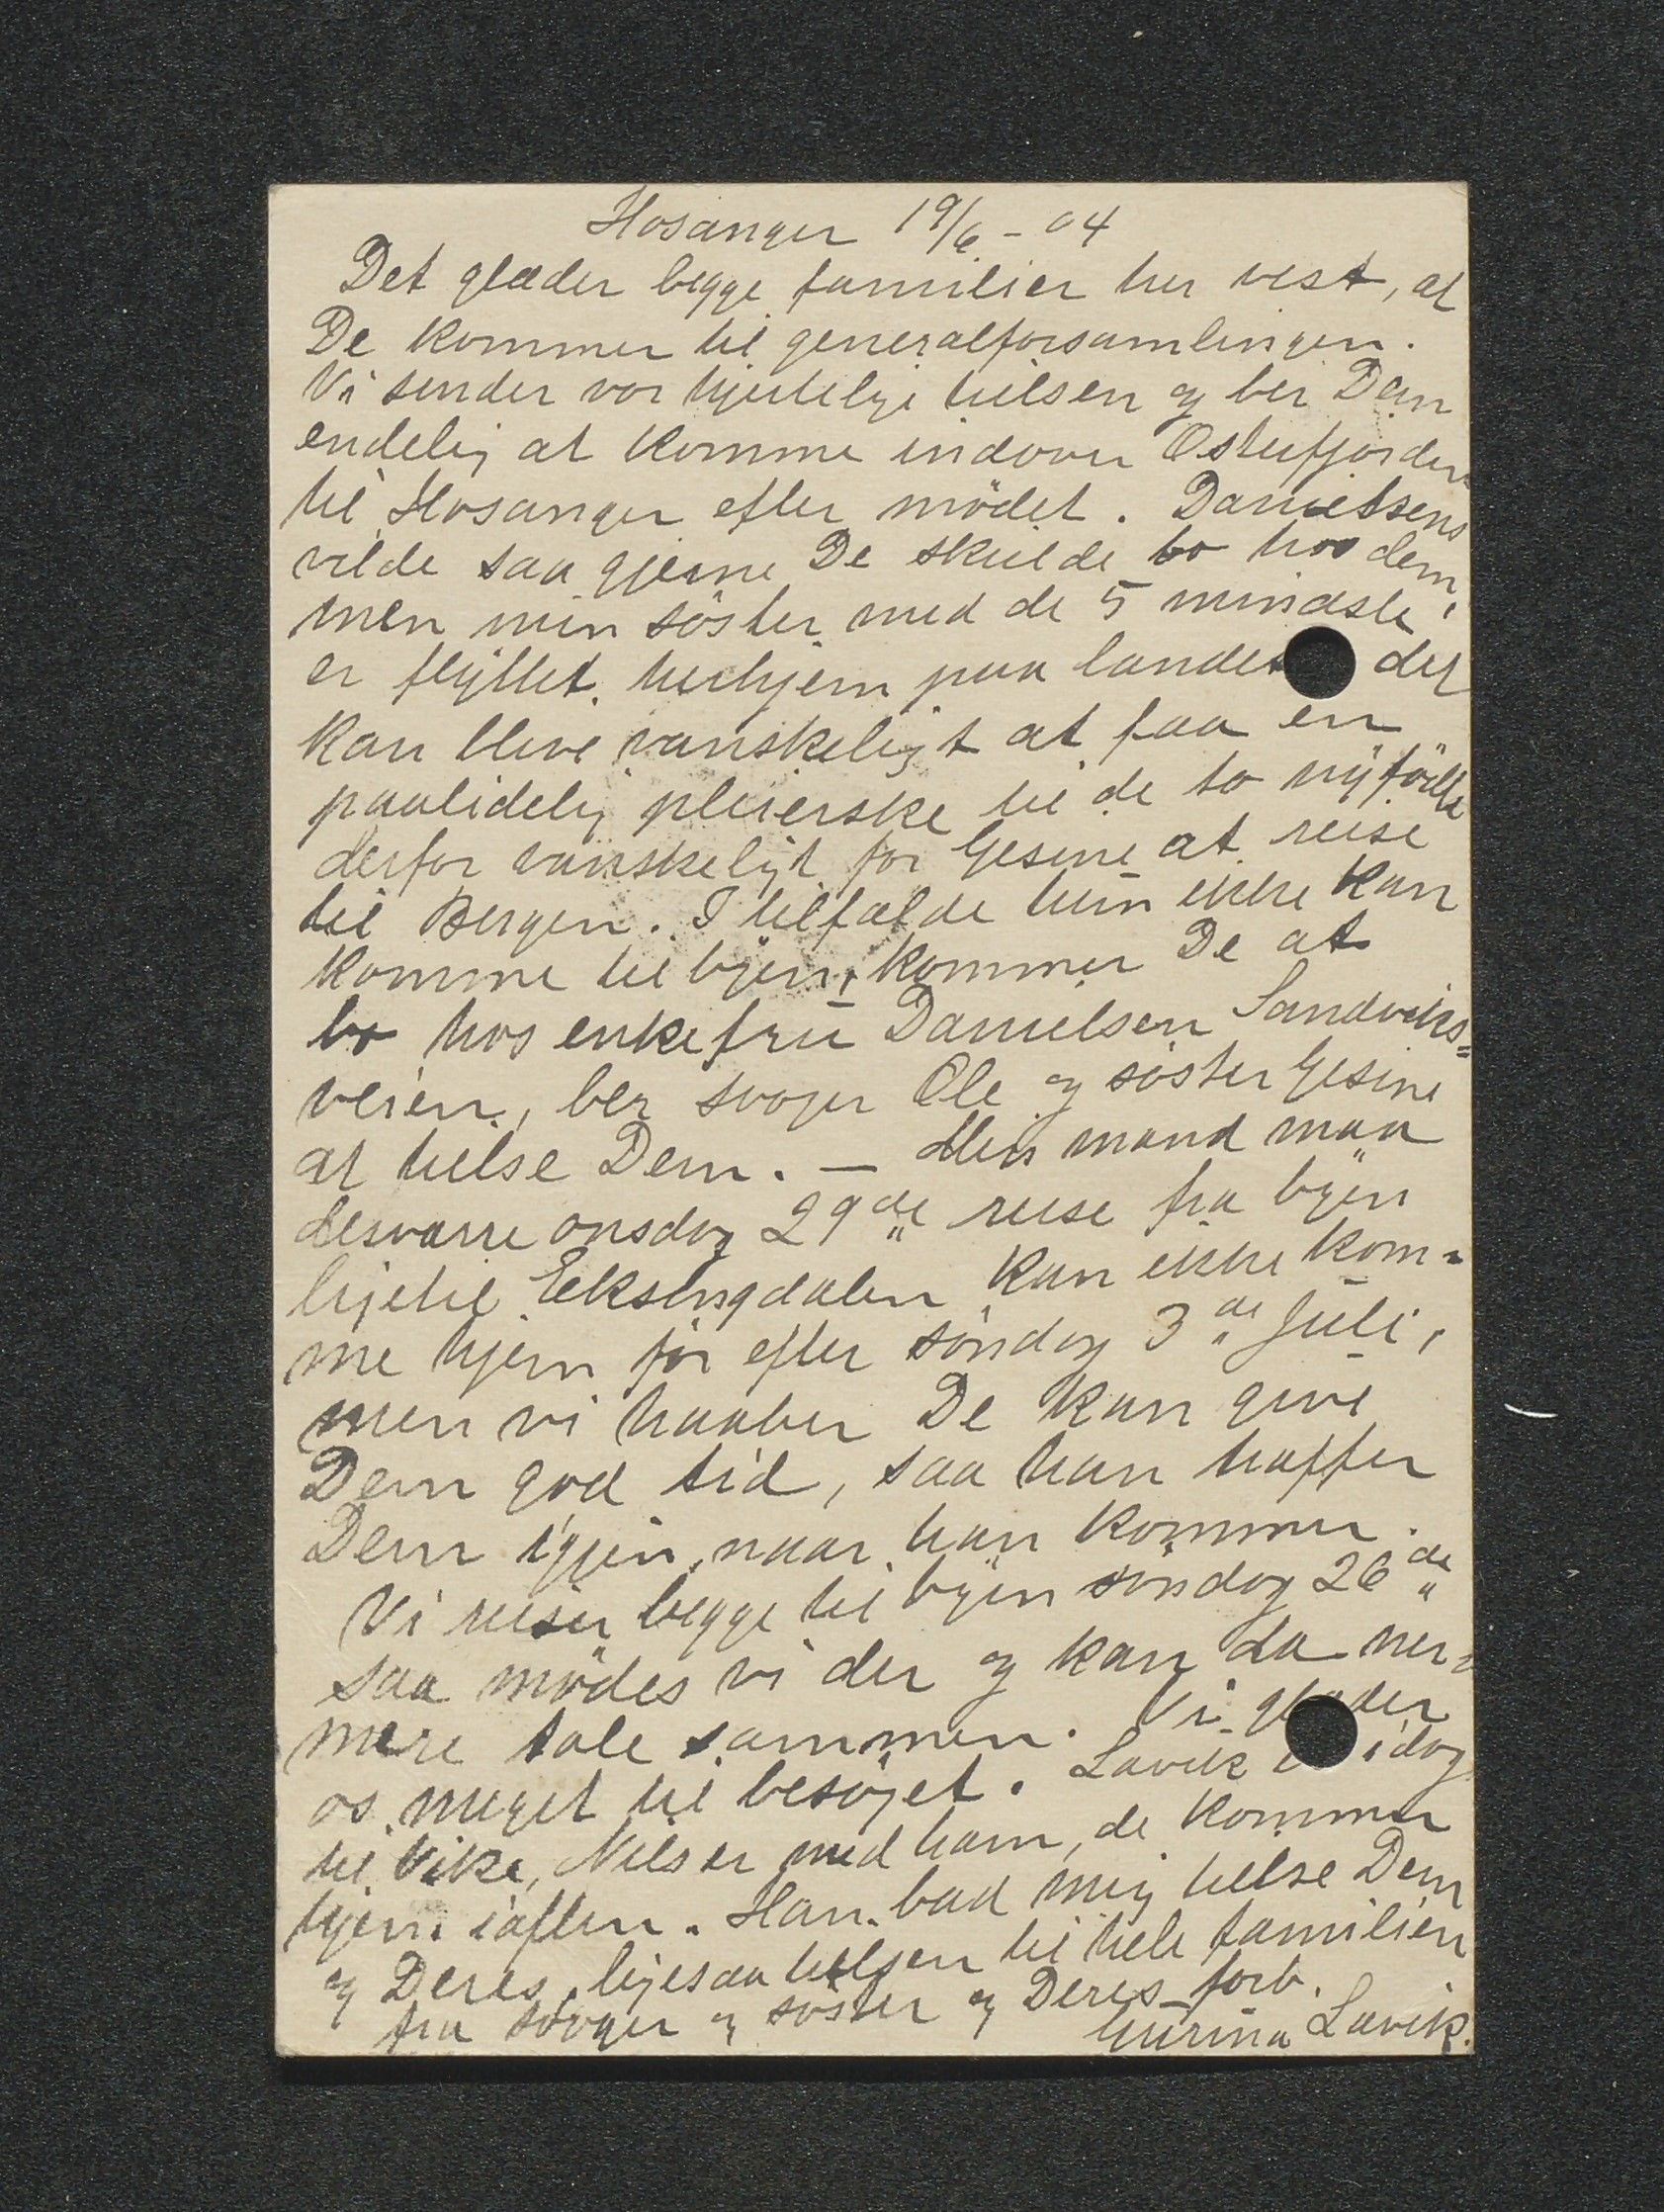 Hosanger 19/6 - 04
Det glæder begge familier her vest, at
De kommer til generalforsamlingen.
Vi sender vor hjertelige hilsen og ber Dem
endelig at komme indover Osterfjorden
til Hosanger efter mödet. Danielsens
vilde saa gjerne De skulde bo hos dem,
men min söster med de 5 mindste
er flyttet herhjem paa landet det
kan blive vanskeligt at faa en
paalidelig pleierske til de to nyfödte
derfor vanskeligt for Gesine at reise
til Bergen. I tilfælde hun ikke kan
komme til byen, kommer De at
bo hos enkefru Danielsen Sandviks=
veien, ber svoger Ole og söster Gesine
at hilse Dem. — Min mand maa
desværre onsdag 29de reise fra byen
lige til Eksingdalen kan ikke kom=
me hjem för efter söndag 3de Juli,
men vi haaber De kan give
Dem god tid, saa han træffer
Dem igjen, naar han kommer.
Vi reiser begge til byen söndag 26de
saa mödes vi der og kan da nær=
mere tale sammen. Vi glæder
os meget til besöget. Lavik idag
til Vike, Nils er med ham, de kommer
hjem iaften. Han bad mig hilse Dem
og Deres, ligesaa hilsen til hele familien
fra svoger og söster og Deres forb.
Gurina Lavik.